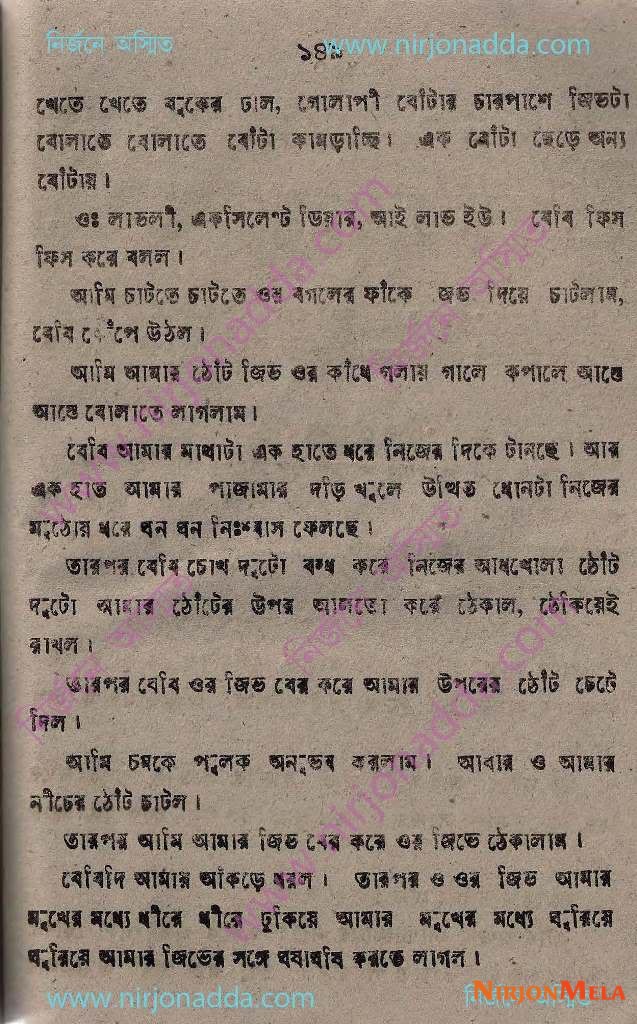 নির্জনে অস্মিত www.nirjonadda.com
১৪৯
খেতে খেতে বুকের ঢাল, গোলাপী বোঁটার চারপাশে জিভটা
বোলাতে বোলাতে বোঁটা কামড়াচ্ছি। এক বোঁটা ছেড়ে অন্য
বোঁটায়।
ওঃ লাভলী, একসিলেণ্ট ডিয়ার, আই লাভ ইউ। বেবি ফিস
ফিস করে বলল।
আমি চাটতে চাটতে ওর বগলের ফাঁকে জিভ দিয়ে চাটলাম,
বেবি কেঁপে উঠল।
আমি আমার ঠোঁট জিভ ওর কাঁধে গলায় গালে কপালে আস্তে
আস্তে বোলাতে লাগলাম।
বেবি আমার মাথাটা এক হাতে ধরে নিজের দিকে টানছে। আর
এক হাত আমার পাজামার দড়ি খুলে উত্থিত ধোনটা নিজের
মুঠোয় ধরে ঘন ঘন নিঃশ্বাস ফেলছে।
তারপর বেবি চোখ দুটো বন্ধ করে নিজের আধখোলা ঠোঁট
দুটো আমার ঠোঁটের উপর আলতো করে ঠেকাল, ঠেকিয়েই
রাখল।
তারপর বেবি ওর জিভ বের করে আমার উপরের ঠোঁট চেটে
দিল।
আমি চমকে পুলক অনুভব করলাম। আবার ও আমার
নীচের ঠোঁট চাটল।
তারপর আমি আমার জিভ বের করে ওর জিভে ঠেকালাম।
বেবিদি আমায় আঁকড়ে ধরল। তারপর ও ওর জিভ আমার
মুখের মধ্যে ধীরে ধীরে ঢুকিয়ে আমার মুখের মধ্যে ঘুরিয়ে
ঘুরিয়ে আমার জিভের সঙ্গে ঘষাঘষি করতে লাগল।
www.nirjonadda.com
NIRJONMELA